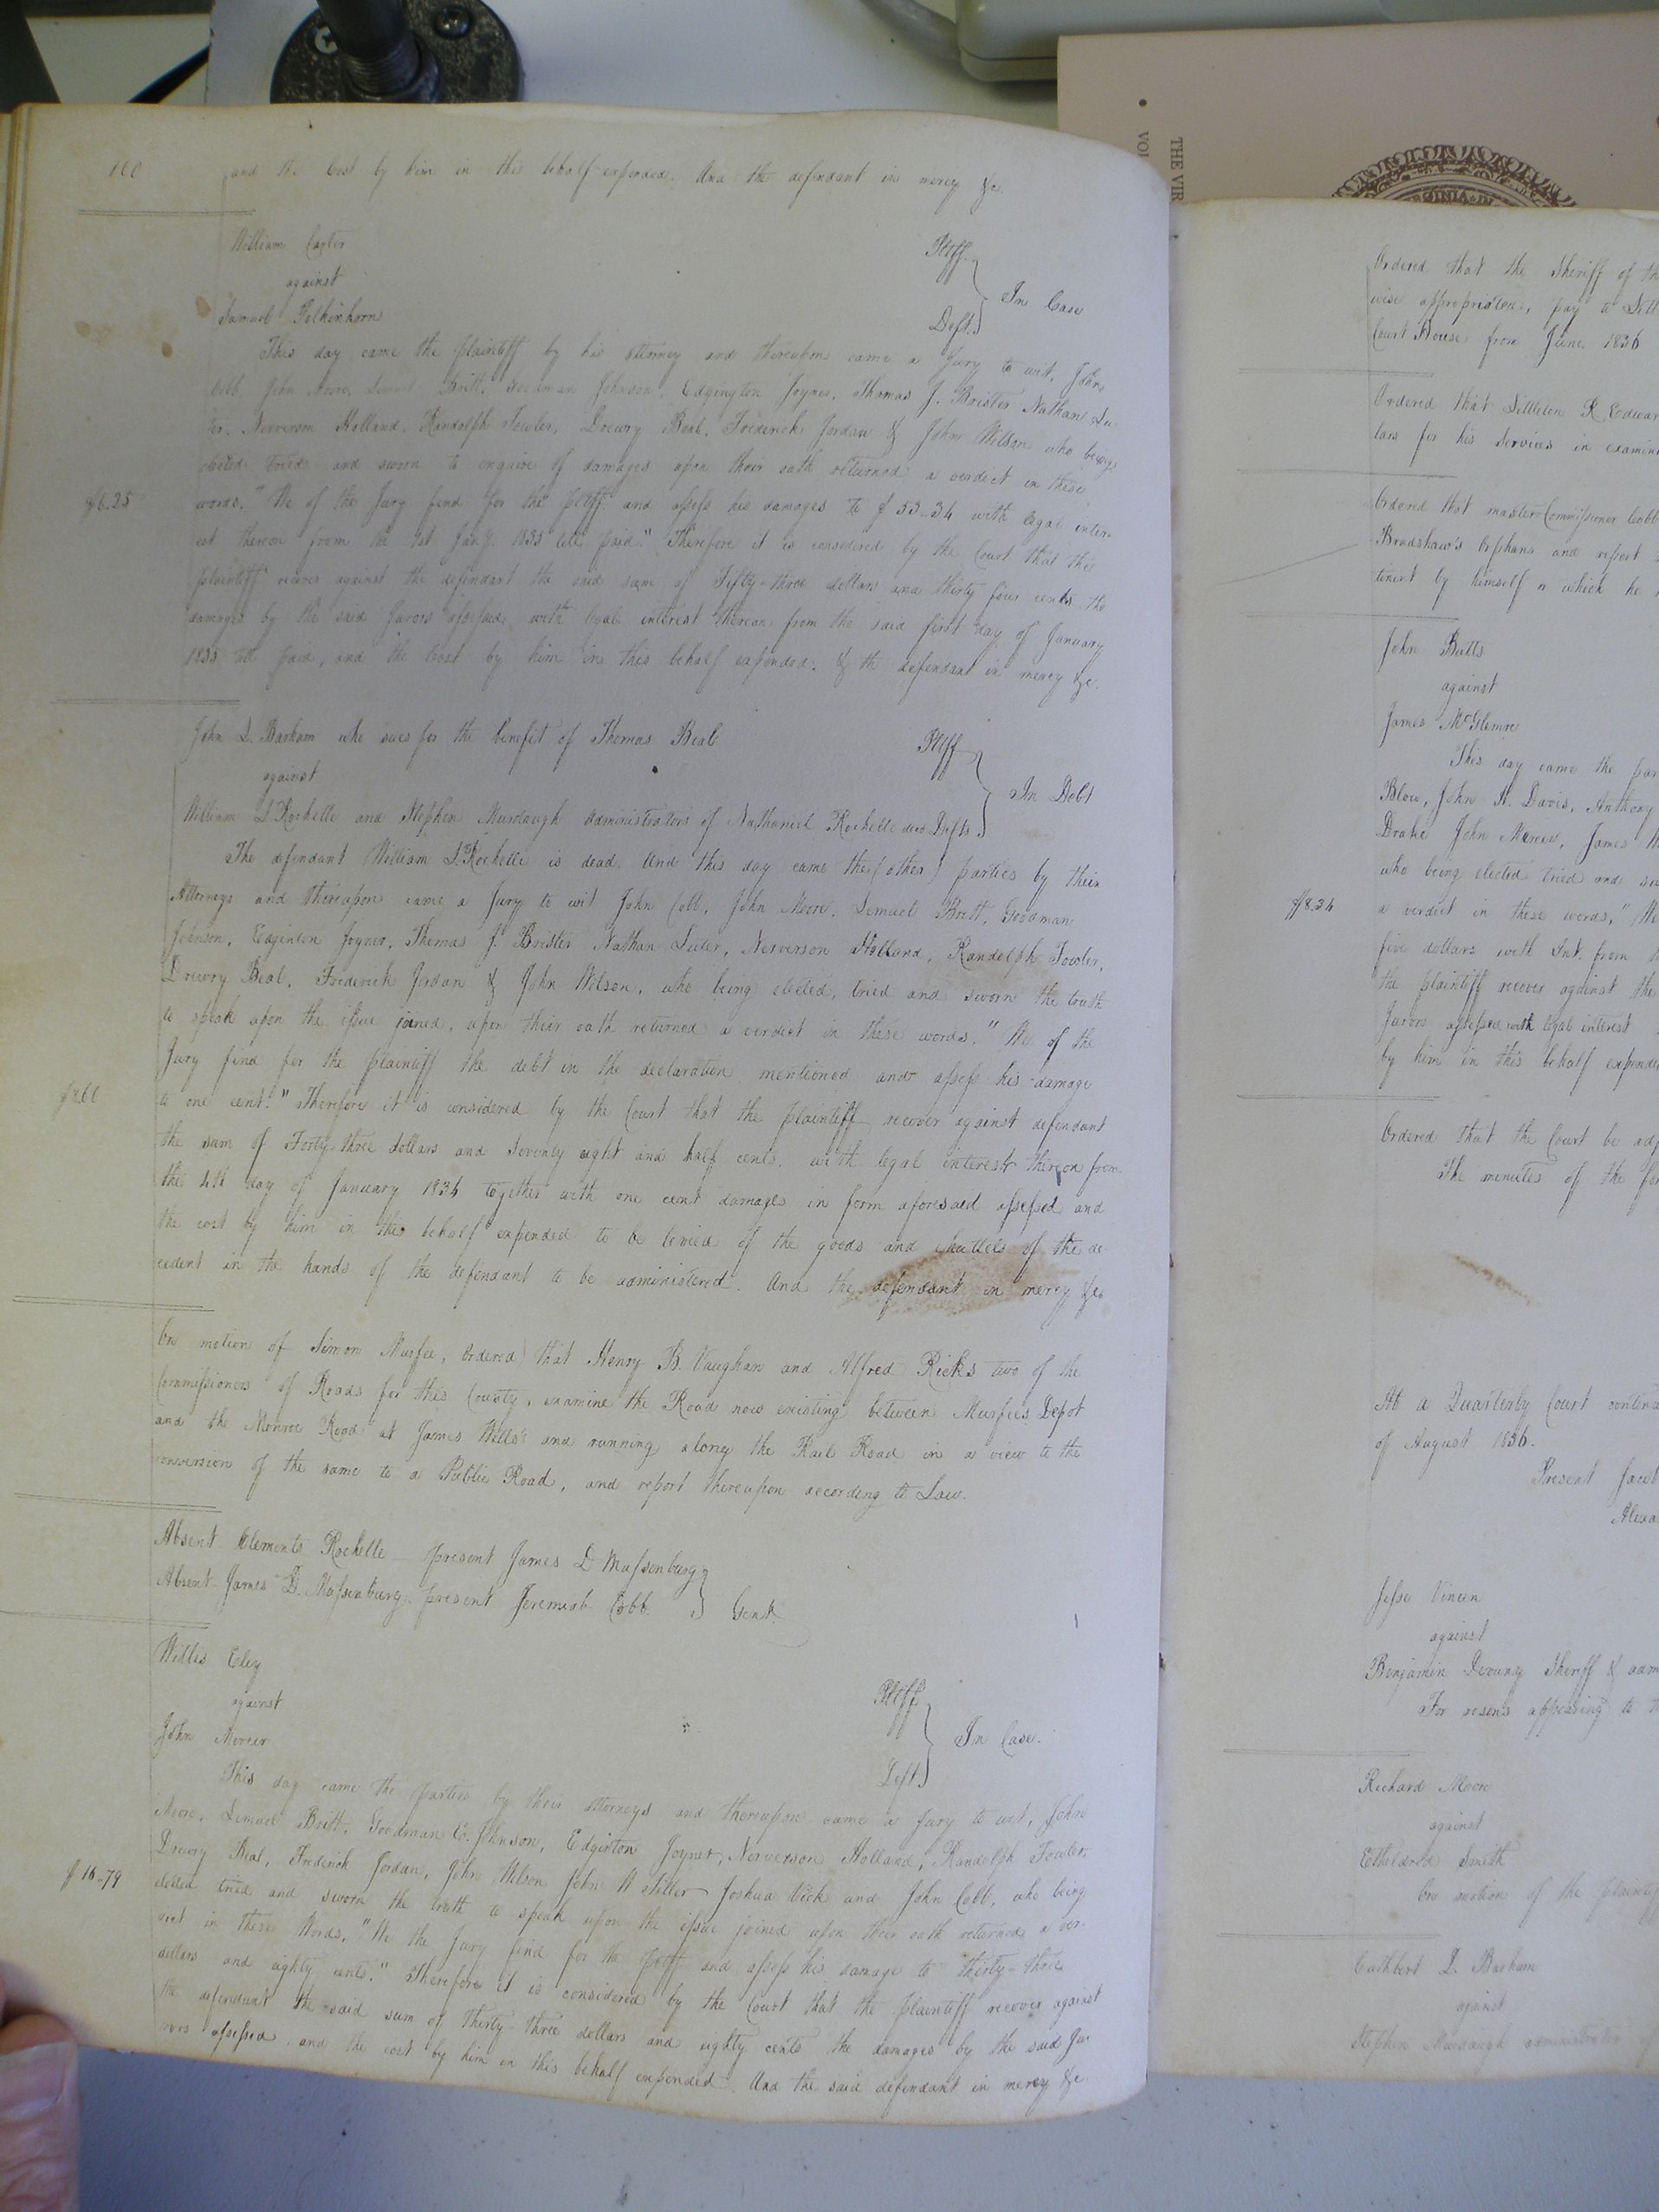 and the Cost by him in this behalf expended. And the defendant in mercy &c.
William Carter Pltff
against In Case
Samuel Deft.
This day came the plaintiff by his attorney and thereupon came a Jury to wit, John
Cobb, John Moore, Lemuel Britt, Goodman Johnson, Edgington Joyner, Thomas J. Brister Nathan Lu-
ter, Nerverson Holland, Randolph Fowler, Drewry Beal, Frederick Jordan & John Wilson who being
elected tried and sworn to enquire of damages upon their oath returned a verdict in these
$6.25
words. "We of the Jury find for the pltff. and assess his damages to $53-34 with legal inter-
est thereon from the 1st Jany. 1835 till paid." Therefore it is considered by the Court that the
plaintiff recover against the defendant the said sum of Fifty-three dollars and thirty four cents the
damages by the said Jurors assessed, with legal interest thereon from the said first day of January
1835 till paid, and the Cost by him in this behalf expended. & the defendant in mercy &c.
John L. Barham who sues for the benefit of Thomas Beal Pltff
against In Debt
William L. Rochelle and Stephen Murdaugh administrators of Nathaniel Rochelle decd Defts.
The defendant William L. Rochelle is dead. And this day came the (other) parties by their
Attorneys and thereupon came a Jury to wit John Cobb, John Moore, Lemuel Britt, Goodman
Johnson, Edginton Joyner, Thomas J. Brister Nathan Luter, Nerverson Holland, Randolph Fowler,
Drewry Beal, Frederick Jordan & John Wilson, who being elected, tried and sworn the truth
to speak upon the issue joined, upon their oath returned a verdict in these words. "We of the
Jury find for the plaintiff the debt in the declaration mentioned and assess his damage
to one cent." Therefore it is considered by the Court that the plaintiff recover against defendant
the sum of Forty-three dollars and seventy eight and half cents, with legal interest thereon from
the 4th day of January 1834 together with one cent damages in form aforesaid assessed and
the cost by him in this behalf expended to be levied of the goods and chattels of the de-
cedent in the hands of the defendant to be administered. And the defendant in mercy &c.
On motion of Simon Murfee, Ordered that Henry B. Vaughan and Alfred Ricks two of the
Commissioners of Roads for this County, examine the Road now existing between Murfees Depot
and the Monroe Road at James Wells's and running along the Rail Road in a view to the
conversion of the same to a Public Road, and report thereupon according to Law.
Absent Clements Rochelle - present James D Massenburg
Absent James D. Massenburg present Jeremiah Cobb Gent.
Willis Eley Pltff
against In Case.
John Mercer Deft
This day came the parties by their attorneys and thereupon came a Jury to wit, John
Moore, Lemuel Britt, Goodman Johnson, Edginton Joyner, Nerverson Holland, Randolph Fowler,
Drewry Beal, Frederick Jordan, John Wilson John Joshua Vick and John Cobb, who being
$16-79
elected tried and sworn the truth to speak upon the issue joined upon their oath returned a ver-
dict in these Words. "We the Jury find for the pltff and assess his damage to thirty-three
dollars and eighty cents." Therefore it is considered by the Court that the plaintiff recover against
the defendant the said sum of thirty-three dollars and eighty cents the damages by the said Ju-
rors assessed and the cost by him in this behalf expended. And the said defendant in mercy &c
THE VIR
VO
Ordered that the Sheriff of th
wise appropriated, pay to
Court House from June 1836
Ordered that Littleton R. Edwar
lars for his Services in examin
Ordered that master Commissioner Cobb
Bradshaw's Orphans and report
by himself or which he
John Butts
against
James McGlemre
This day came the par
Blow, John Davis, Anthony
Drake John Mercer, James
who being elected tried and sw
$8.34
a verdict in these words, "We
five dollars with Int. from
the plaintiff recover against the
Jurors assessed with legal interest
by him in this behalf expende
Ordered that the Court be adj
The minutes of the for
At a Quarterly Court contin
of August 1836.
Present Jacob
Alexa
Jesse Vincen
against
Benjamin Devany Sheriff & adm
For reasons appearing to t
Richard Moore
against
Etheldred Smith
On motion of the plaintif
Cuthbert L. Barham
against
Stephen Murdaugh administrator of